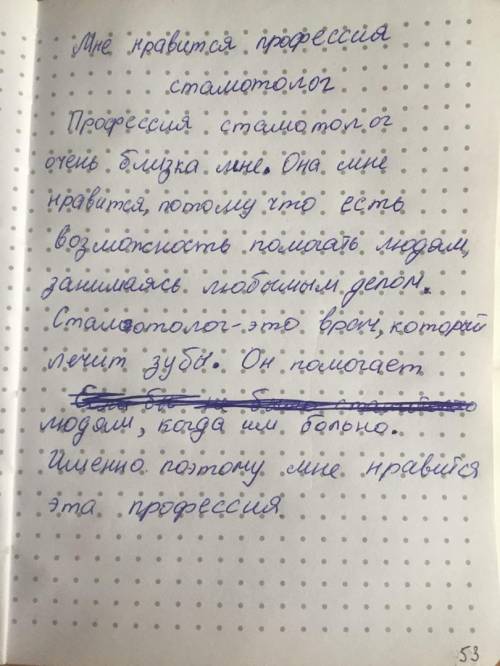 Мне нравится профессия
стаматолог
Профессия стаматолог
очень близка мне. Она мне
нравится, потому что есть
возможность помогать людям,
занимаясь любымым делом.
Стаматолог-это врач, который
лечит зубы. Он помогает
людям, когда им больно.
Именно поэтому мне нравится
эта профессия
53